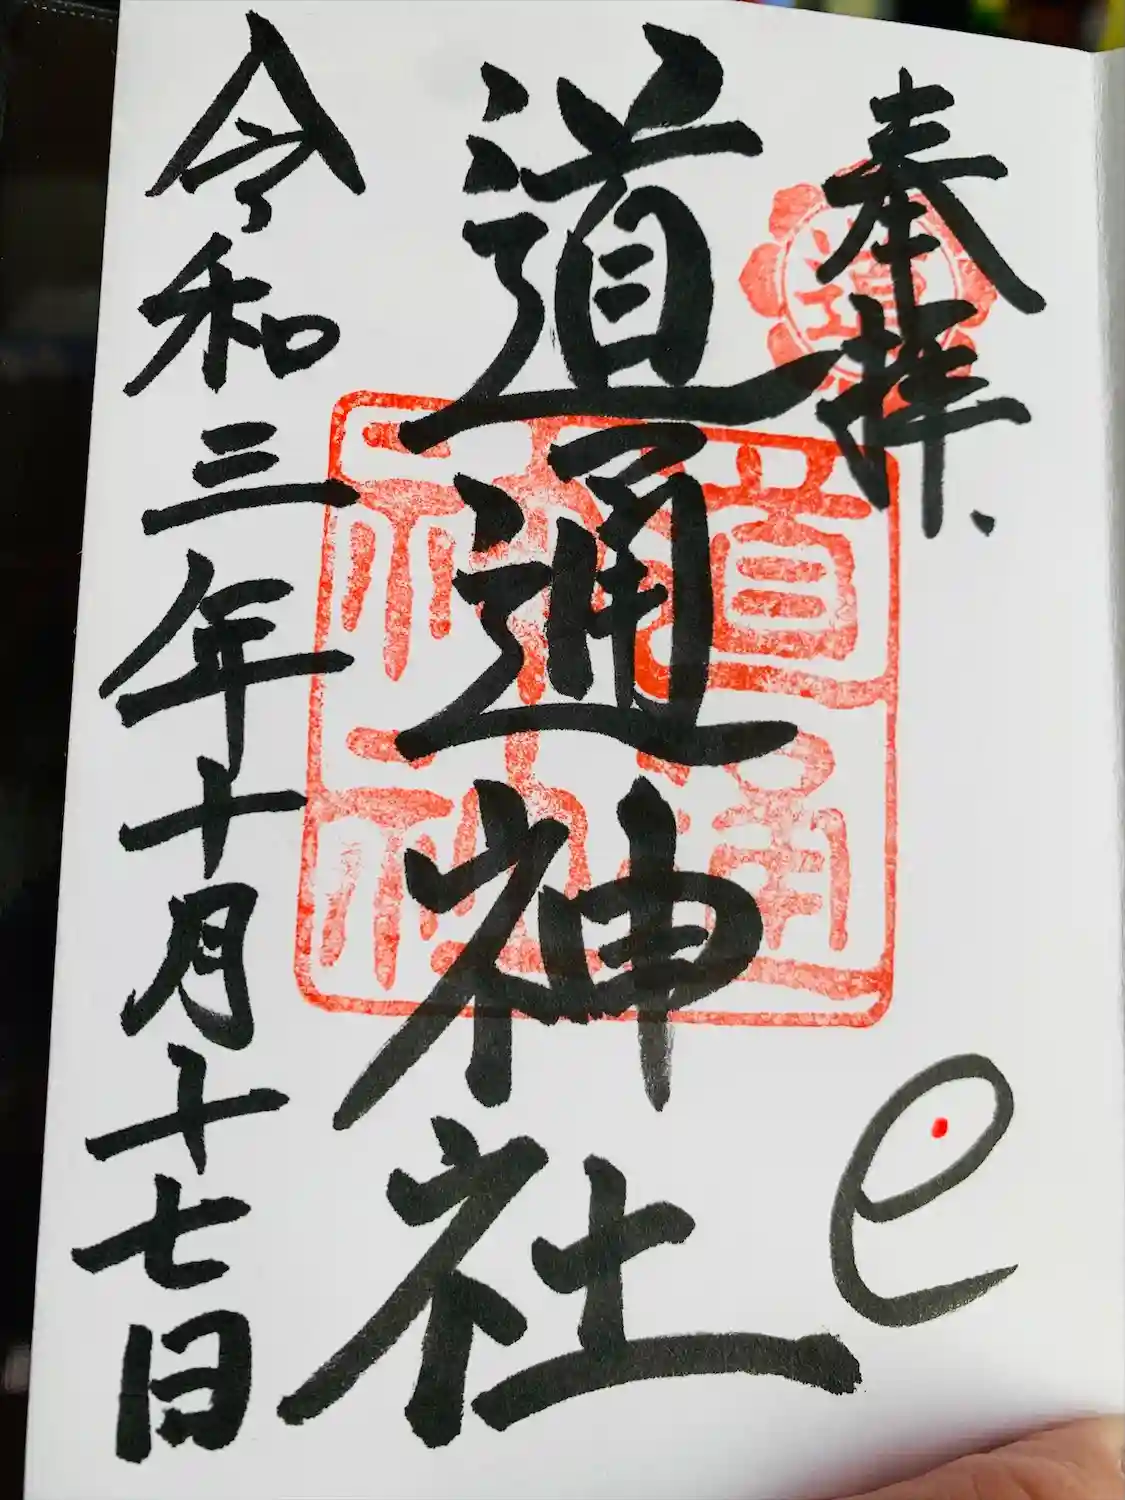 奉拝
道通神社
令和三年十月十七日
道
道通
神社